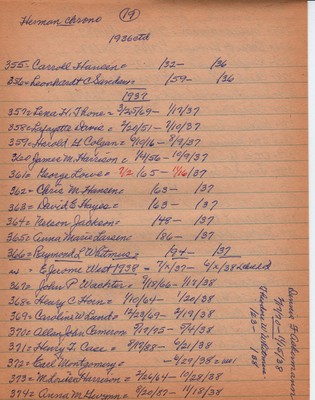 Herman chrono (19)
1936 std
355 - Carroll Hansen = /32 - /36
356 = Leonhardt C = /59 - /36
1937
357 = Lena H. Thone = 3/25/69 - 1/17/37
358 = Lafayette = 2/20/51 - 2/10/37
359 = Harold G Colgan = 9/10/16 - 8/9/37
360 James M. Harrison = 1/4/56 - 10/9/37
361 = George Lowe = 7/2 /65 - 1/16/37
362 = Chris M. Hansen = /63 - /37
363 = David E Hayes = /63 - /37
364 = Nelson Jackson = /48 - /37
365 = Anna Marie Larsen = /86 - /37
366 = Raymond L Whitmus = /94 - /37
E Jerome West 1938 =
369 = John P. Wachter = 9/18/66 - 1/18/38
368 = Henry C Horn = 1/10/64 - 1/20/38
369 = Carolina W Lund = 4/23/69 - 2/19/38
370 = Allan John Cameron 9/19/95 - 3/4/38
371 = Henry T. Case = 8/19/88 - 6/21/38
372 = Earl Montgomery = - 6/29/38 =
373 = M. Louise Harrison = 2/26/64 - 10/28/38
374 = Anna M. = 9/20/87 - 11/18/38
Daniel F Ackermann
Theodore W. Whitmus
/23 - /38